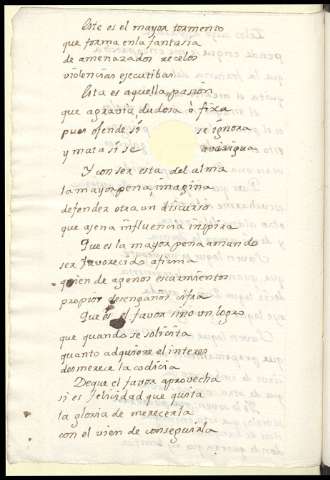 Este es el mayor tormento
que forma en la fantasia
de amenazados recelos
violencias ejecutibas
Esta es aquella passión
que agravia, dudosa ò fixa
pues ofende si se ignora
y mata si se averigua
Y con ser esta del alma
la mayor pena, imagina
defender otra un discurso
que agena influencia inspira
Que es la mayor pena amando
ser favorecido afirma
quien de agenos escarmientos
propios desengaños cifra
Que es el favor sino un logro
que quando se solicita
quanto adquiere el interes
desmerece la codicia
De que el favor aprovecha
si es felicidad que quita
la gloria de merecerla
con el vien de conseguirla